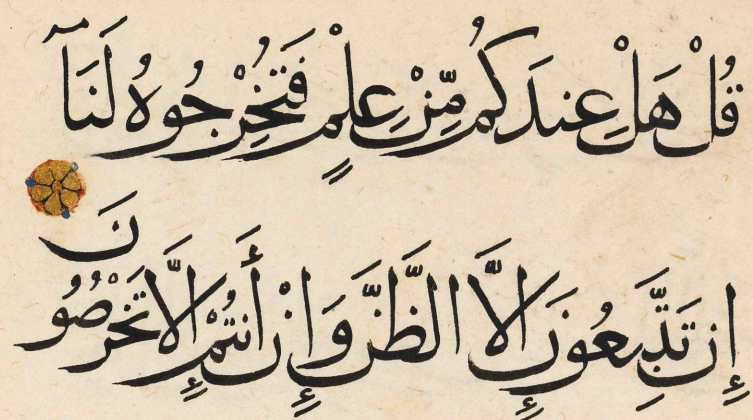 قُلْ هَلْ عِندَكُم مِّنْ عِلْمٍ فَتُخْرِجُوهُ لَنَآ
إِن تَتَّبِعُونَ إِلَّا الظَّنَّ وَإِنْ أَنتُمْ إِلَّا تَخْرُصُونَ